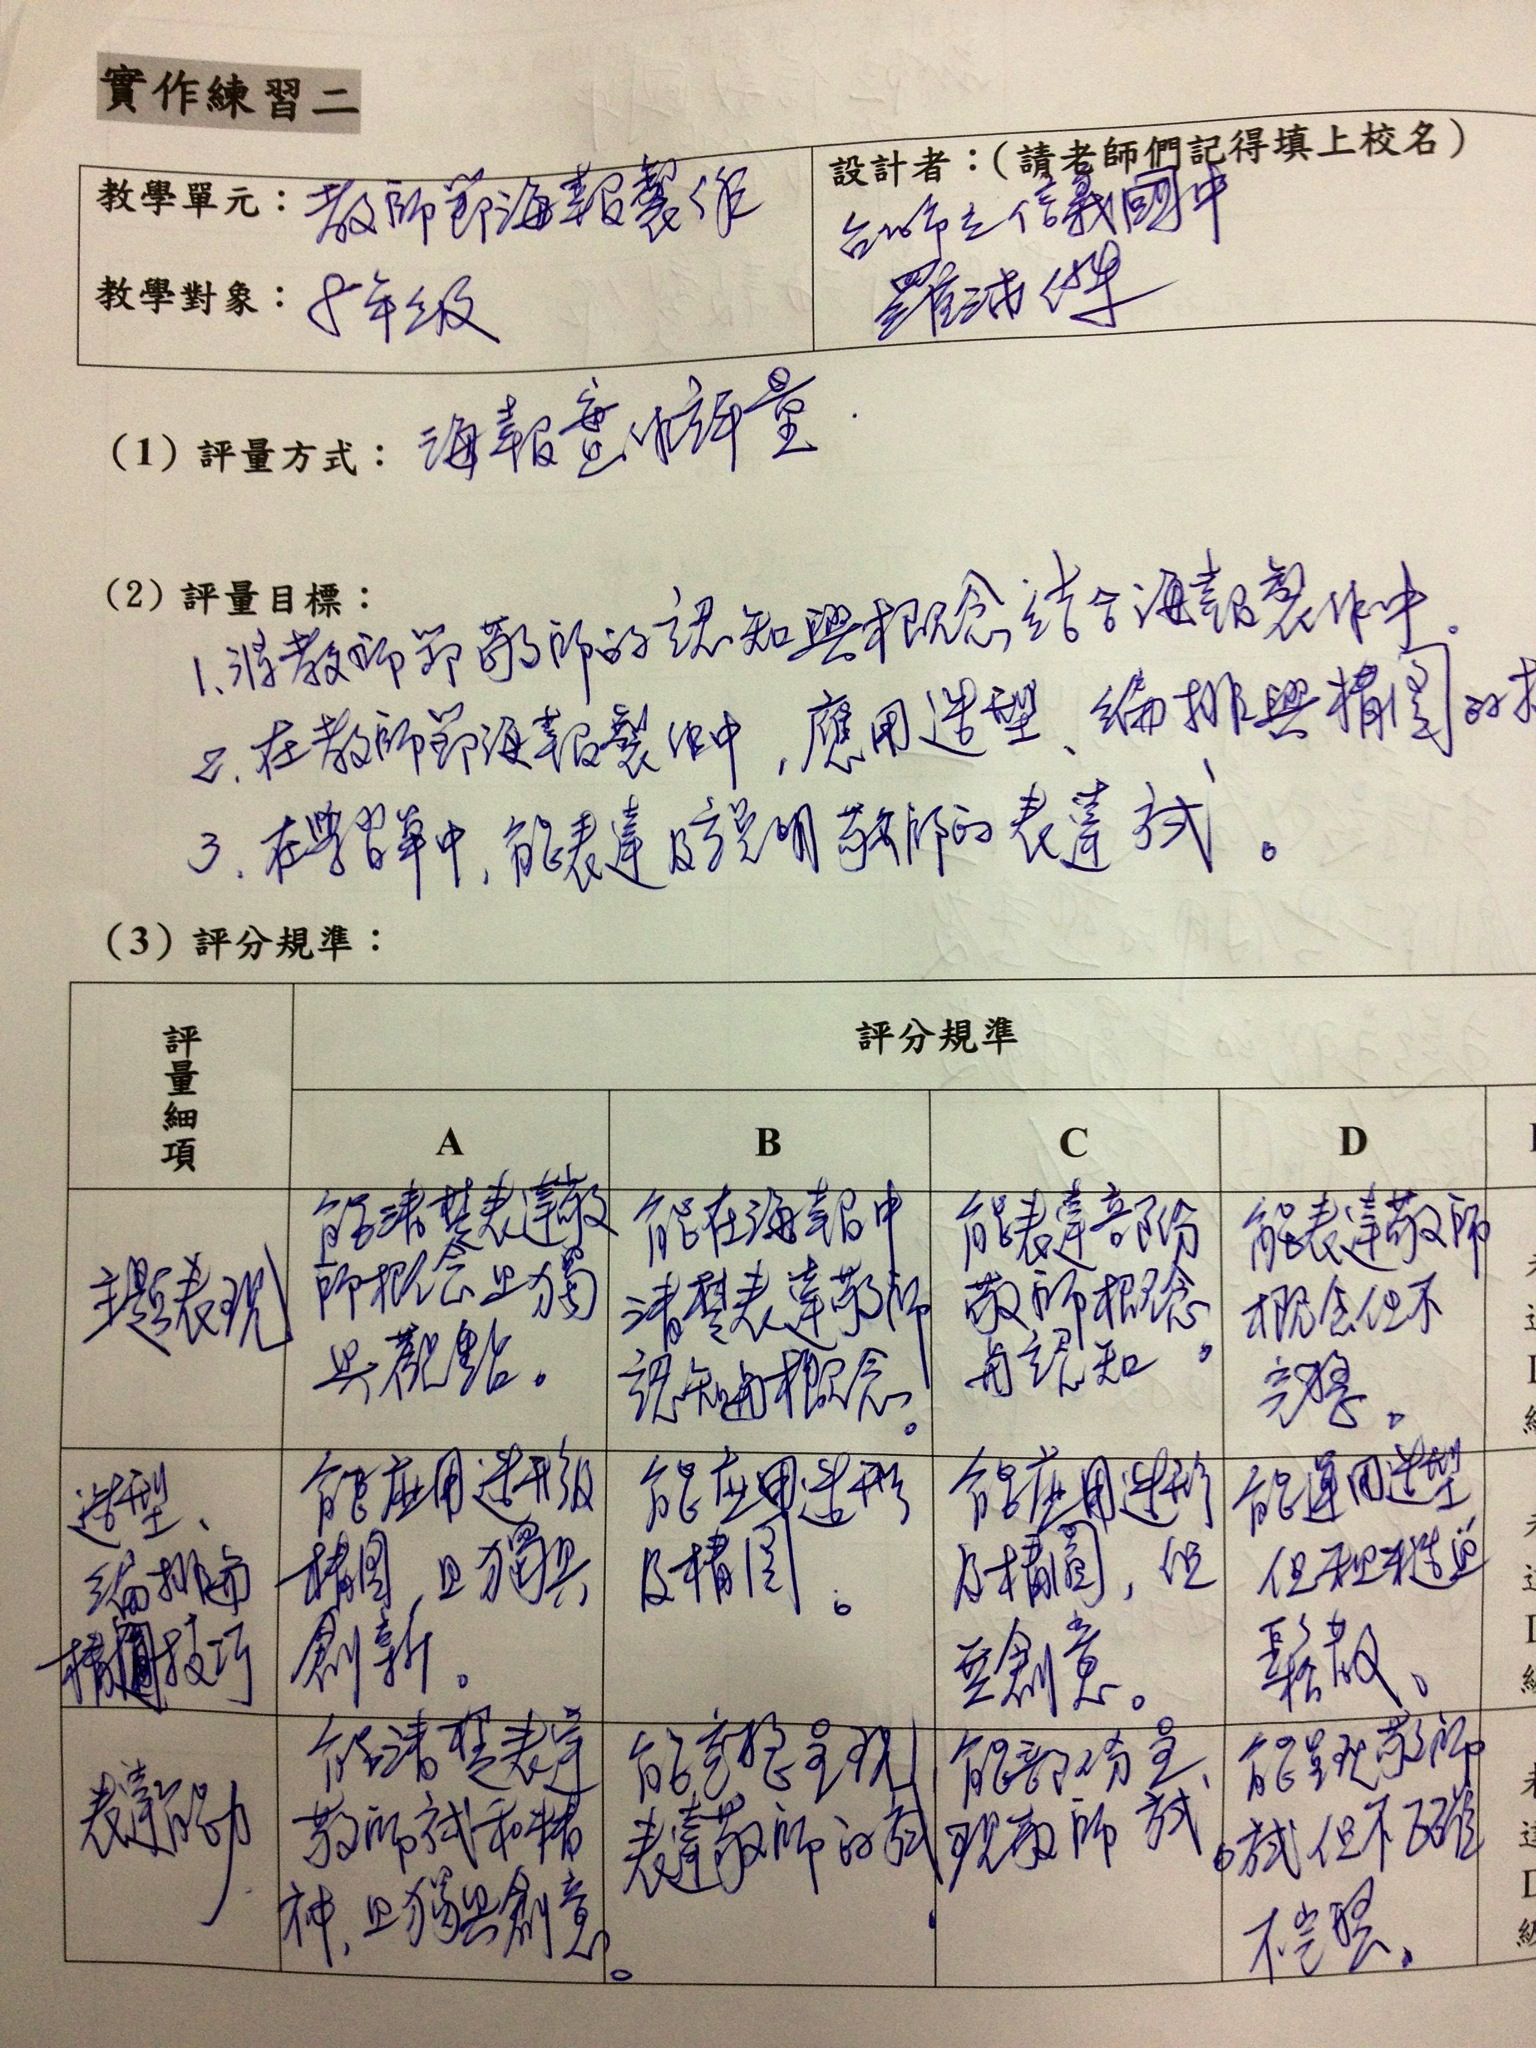 實作練習二
教學單元：教師節海報製作
教學對象：8年級
設計者：（請老師們記得填上校名）
台北市立信義國中
羅 傑
（1）評量方式：海報實作評量.
（2）評量目標：
1、將教師節敬師的認知與概念結合海報製作中.
2、在教師節海報製作中，應用造型、編排與構圖的
3、在學習單中，能表達及說明敬師的表達式。
（3）評分規準：
評量細項
評分規準
A
B
C
D
主題表現
能清楚表達敬
師概念且獨
具觀點。
能在海報中
清楚表達敬師
認知與概念。
能表達部份
敬師概念
與認知。
能表達敬師
概念但不
完整。
造型、
編排與
構圖技巧
能應用造形及
構圖，且獨具
創新。
能應用造形
及構圖。
能應用造形
及構圖，但
無創意。
能運用造型
但 構造
鬆散、
表達能力
能清楚表達
敬師式和精
神，且獨具創意。
能完整呈現
表達敬師的式.
能部份呈
現敬師式。
能呈現敬師
式但不正確
不完整、
未
達
D
級